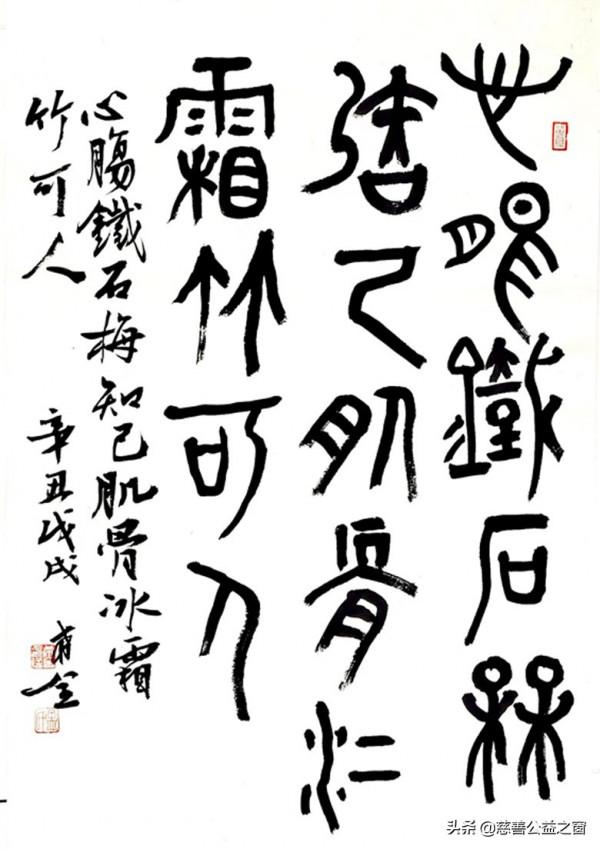 心腸鐵石梅
知己肌骨冰
霜竹可人
心腸鐵石梅知己肌骨冰霜
竹可人 辛丑戊戌
头条 @慈善公益之窗